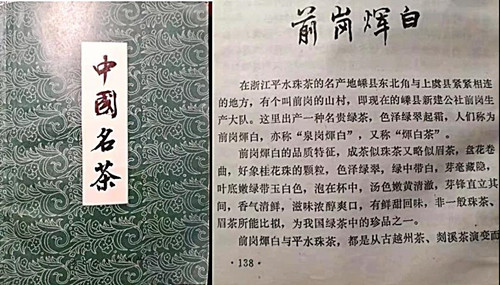 中國名茶
前岗煇白
在浙江平水珠茶的名产地嵊县东北角与上虞县紧紧相连
的地方，有个叫前岗的山村，即现在的嵊县新建公社前岗生
产大队。这里出产一种名贵绿茶，色泽绿翠起霜，人们称为
前岗煇白，亦称“泉岗煇白”，又称“煇白茶”。
前岗煇白的品质特征，成茶似珠茶又略似眉茶，盘花卷
曲，好象桂花珠的颗粒，色泽绿翠，绿中带白，芽毫藏隐，
叶底嫩绿带玉白色，泡在杯中，汤色嫩黄清澈，芽锋直立其
间，香气清鲜，滋味浓醇爽口，有鲜甜回味，非一般珠茶、
眉茶所能比拟，为我国绿茶中的珍品之一。
前岗煇白与平水珠茶，都是从古越州茶、剡溪茶演变而
·138·